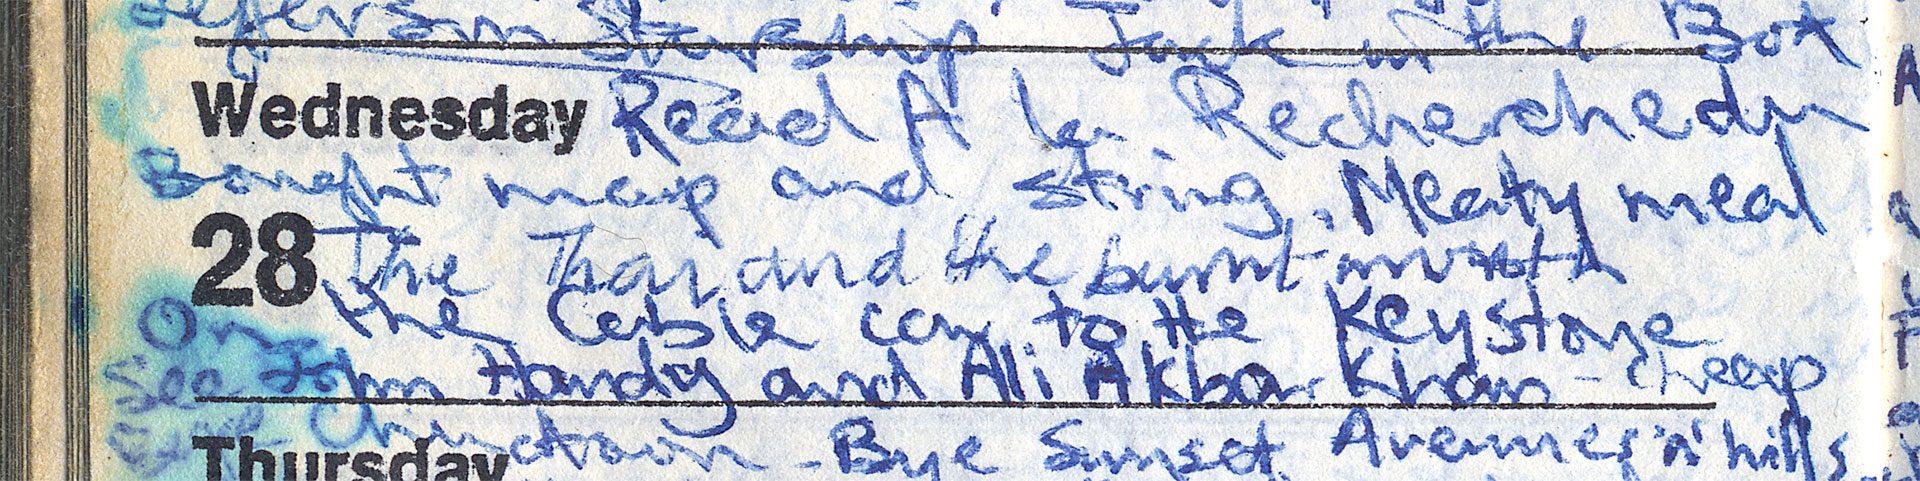 Jefferson Starship Jack in the Box
Wednesday Read A la Recherche du
Bought map and string. Meaty meal
28 The Thai and the burnt mouth
On the Cable car to the Keystone
See John Handy and Ali Akbar Khan - cheap
Chinatown - Bye Sunset Avenues 'n' hills
Thursday